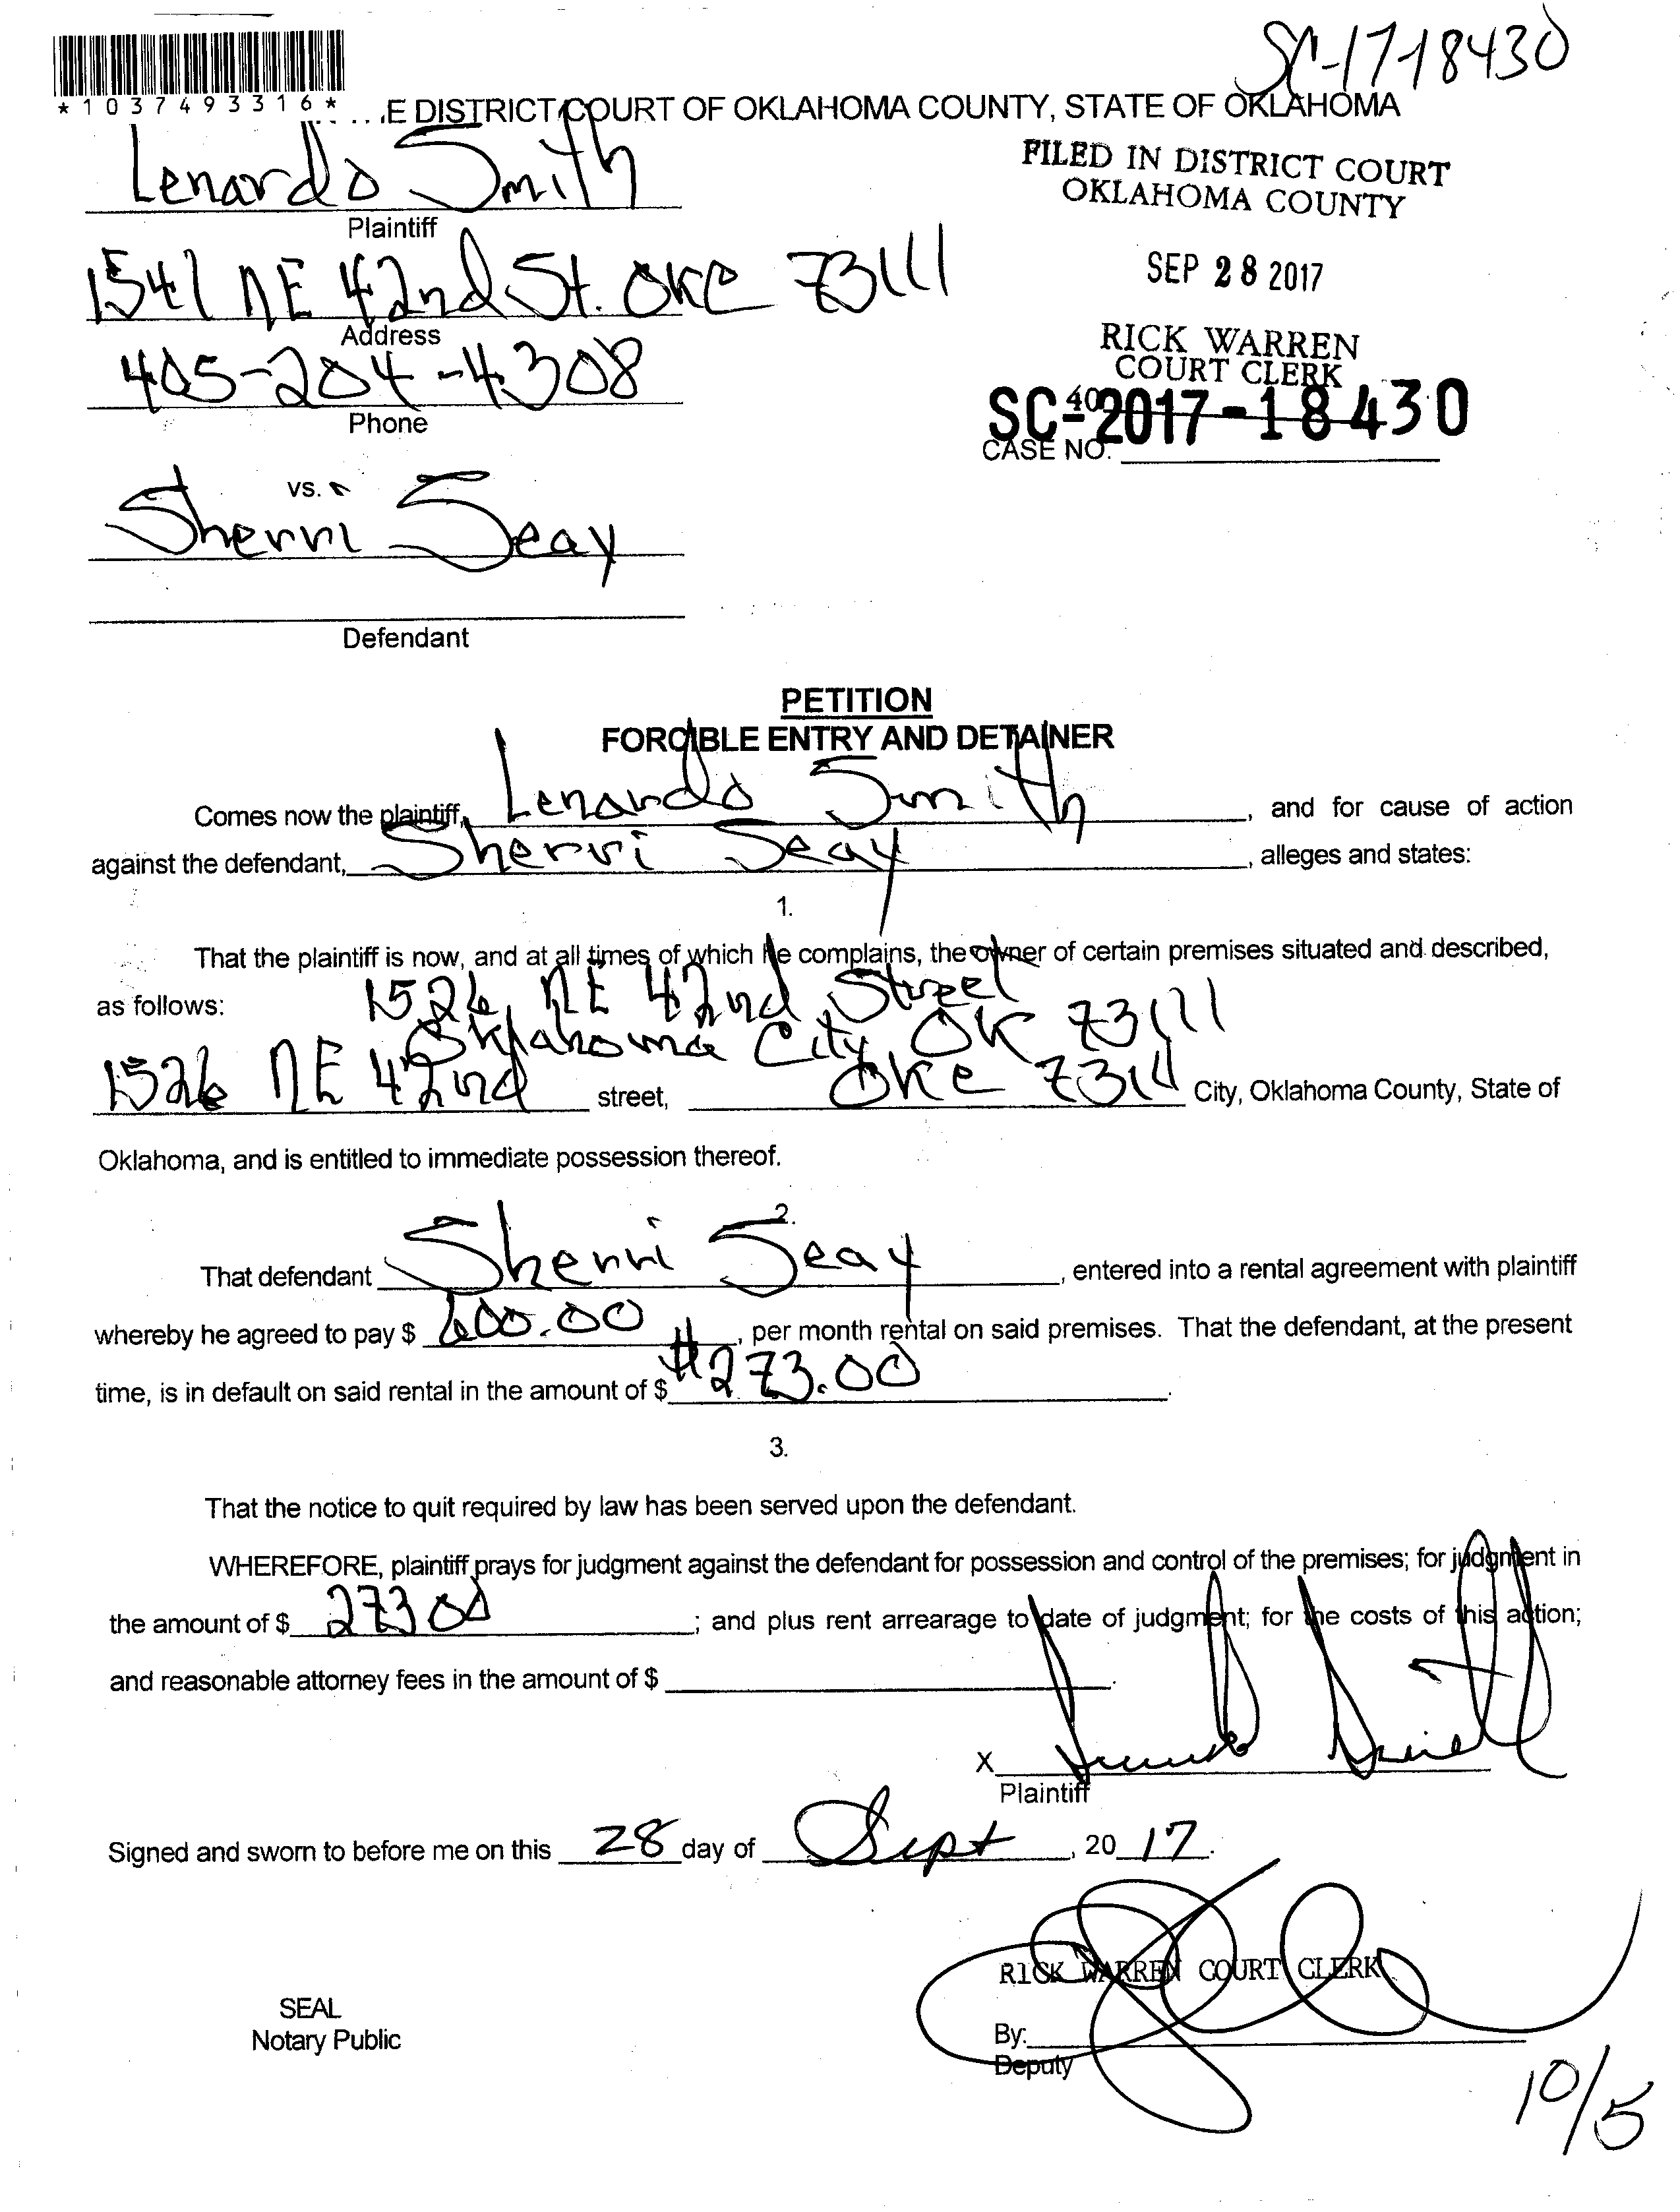 SC-17-18430
*1037493316*
E DISTRICT COURT OF OKLAHOMA COUNTY, STATE OF OKLAHOMA
Lenardo Smith
Plaintiff
FILED IN DISTRICT COURT
OKLAHOMA COUNTY
1541 NE 42nd St. OKC 73111
Address
SEP 28 2017
405-204-4308
Phone
RICK WARREN
COURT CLERK
40
SC-2017-18430
CASE NO.
vs.
Sherri Seay
Defendant
PETITION
FORCIBLE ENTRY AND DETAINER
Comes now the plaintiff, Lenardo Smith, and for cause of action
against the defendant, Sherri Seay, alleges and states:
1.
That the plaintiff is now, and at all times of which he complains, the owner of certain premises situated and described,
as follows: 1526 NE 42nd Street
Oklahoma City OK 73111
1526 NE 42nd street, OKC 73111 City, Oklahoma County, State of
Oklahoma, and is entitled to immediate possession thereof.
2.
That defendant Sherri Seay, entered into a rental agreement with plaintiff
whereby he agreed to pay $ 600.00, per month rental on said premises. That the defendant, at the present
time, is in default on said rental in the amount of $ #273.00.
3.
That the notice to quit required by law has been served upon the defendant.
WHEREFORE, plaintiff prays for judgment against the defendant for possession and control of the premises; for judgment in
the amount of $ 273 00; and plus rent arrearage to date of judgment; for the costs of this action;
and reasonable attorney fees in the amount of $ .
X Lenardo Smith
Plaintiff
Signed and sworn to before me on this 28 day of Sept, 20 17.
RICK WARREN COURT CLERK
SEAL
Notary Public
By:
Deputy
10/5